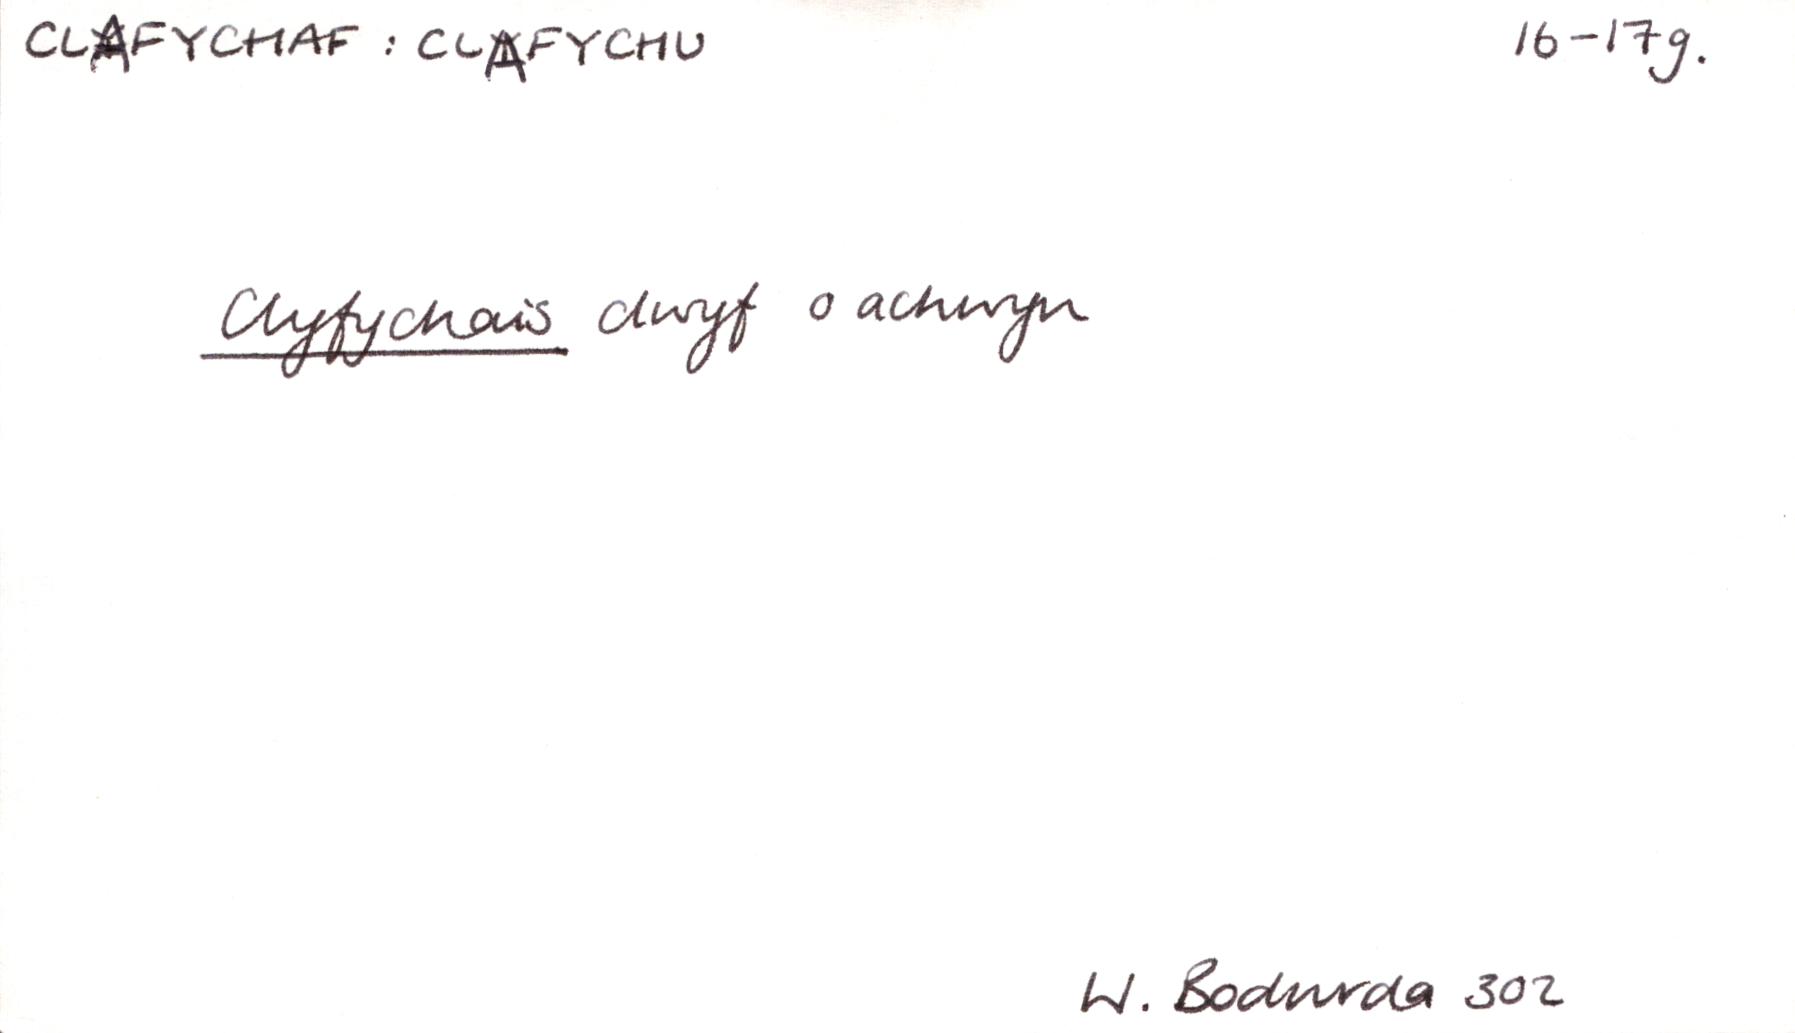 CLAFYCHAF : CLAFYCHU 16-17g.
Clyfychais dwyf o achwyn
W. Bodwrda 302